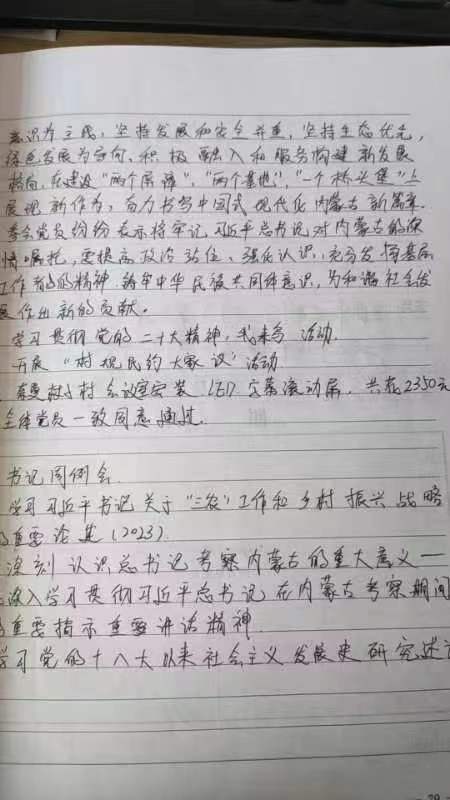 意识为主线，坚持发展和安全并重，坚持生态优先，
绿色发展为导向，积极融入和服务构建新发展
格局，在建设"两个屏障"、"两个基地"、"一个桥头堡"上
展现新作为，奋力书写中国式现代化内蒙古新篇章。
党员纷纷表示将牢记习近平总书记对内蒙古的深
情嘱托，要提高政治站位、强化认识，充分发
工作的精神，铸牢中华民族共同体意识，为和谐社会发
展作出新的贡献。
学习贯彻党的二十大精神，我来学 活动.
开展"村规民约大家议"活动
村会议室安装LED字幕滚动屏，共花2350元
全体党员一致同意通过.
书记周例会.
学习习近平书记关于"三农"工作和乡村振兴战略
重要论述(2023).
深刻认识总书记考察内蒙古的重大意义一
深入学习贯彻习近平总书记在内蒙古考察期间
重要指示重要讲话精神.
学习党的十八大以来社会主义发展史研究述
29